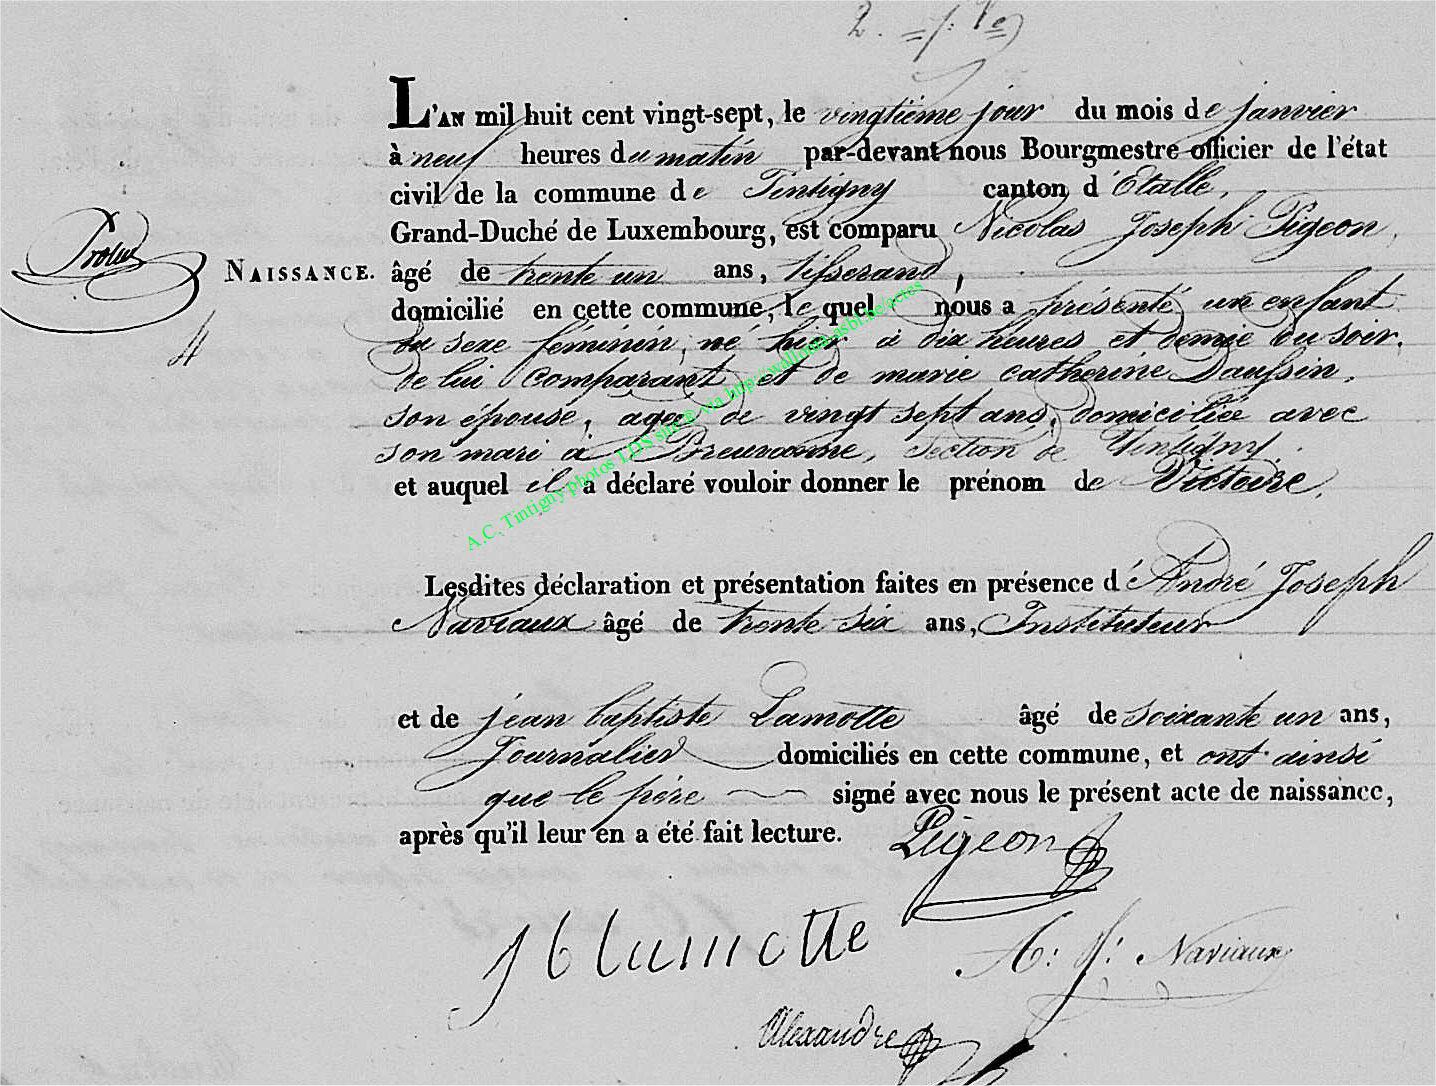 2.
L'AN mil huit cent vingt-sept, le vingtième jour du mois de janvier
à neuf heures du matin par-devant nous Bourgmestre officier de l'état
civil de la commune de Tintigny canton d'Etalle,
Grand-Duché de Luxembourg, est comparu Nicolas Joseph Pigeon,
NAISSANCE. âgé de trente un ans, tisserand,
domicilié en cette commune, le quel nous a présenté un enfant
4 du sexe féminin, né hier à dix heures et demie du soir,
de lui comparant et de marie catherine Daussin,
son épouse, agée de vingt sept ans, domiciliée avec
son mari à Breuvanne, section de Tintigny.
et auquel il a déclaré vouloir donner le prénom de Victoire.
A.C. Tintigny photos LDS site @ via http://wallonia-asbl.be/actes
Lesdites déclaration et présentation faites en présence d'André Joseph
Naviaux âgé de trente six ans, Instituteur
et de jean baptiste Lamotte âgé de soixante un ans,
Journalier domiciliés en cette commune, et ont ainsi
que le père signé avec nous le présent acte de naissance,
après qu'il leur en a été fait lecture. Pigeon
J b lamotte A: J: Naviaux
Alexandre